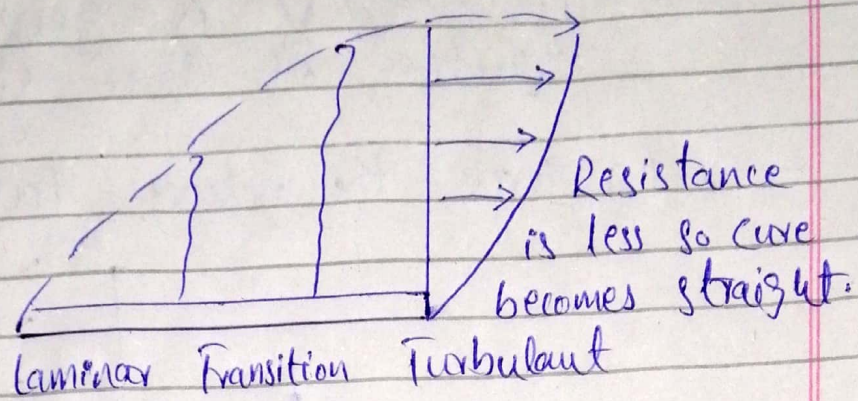 Resistance
is less so curve
becomes straight.
Laminar Transition Turbulant